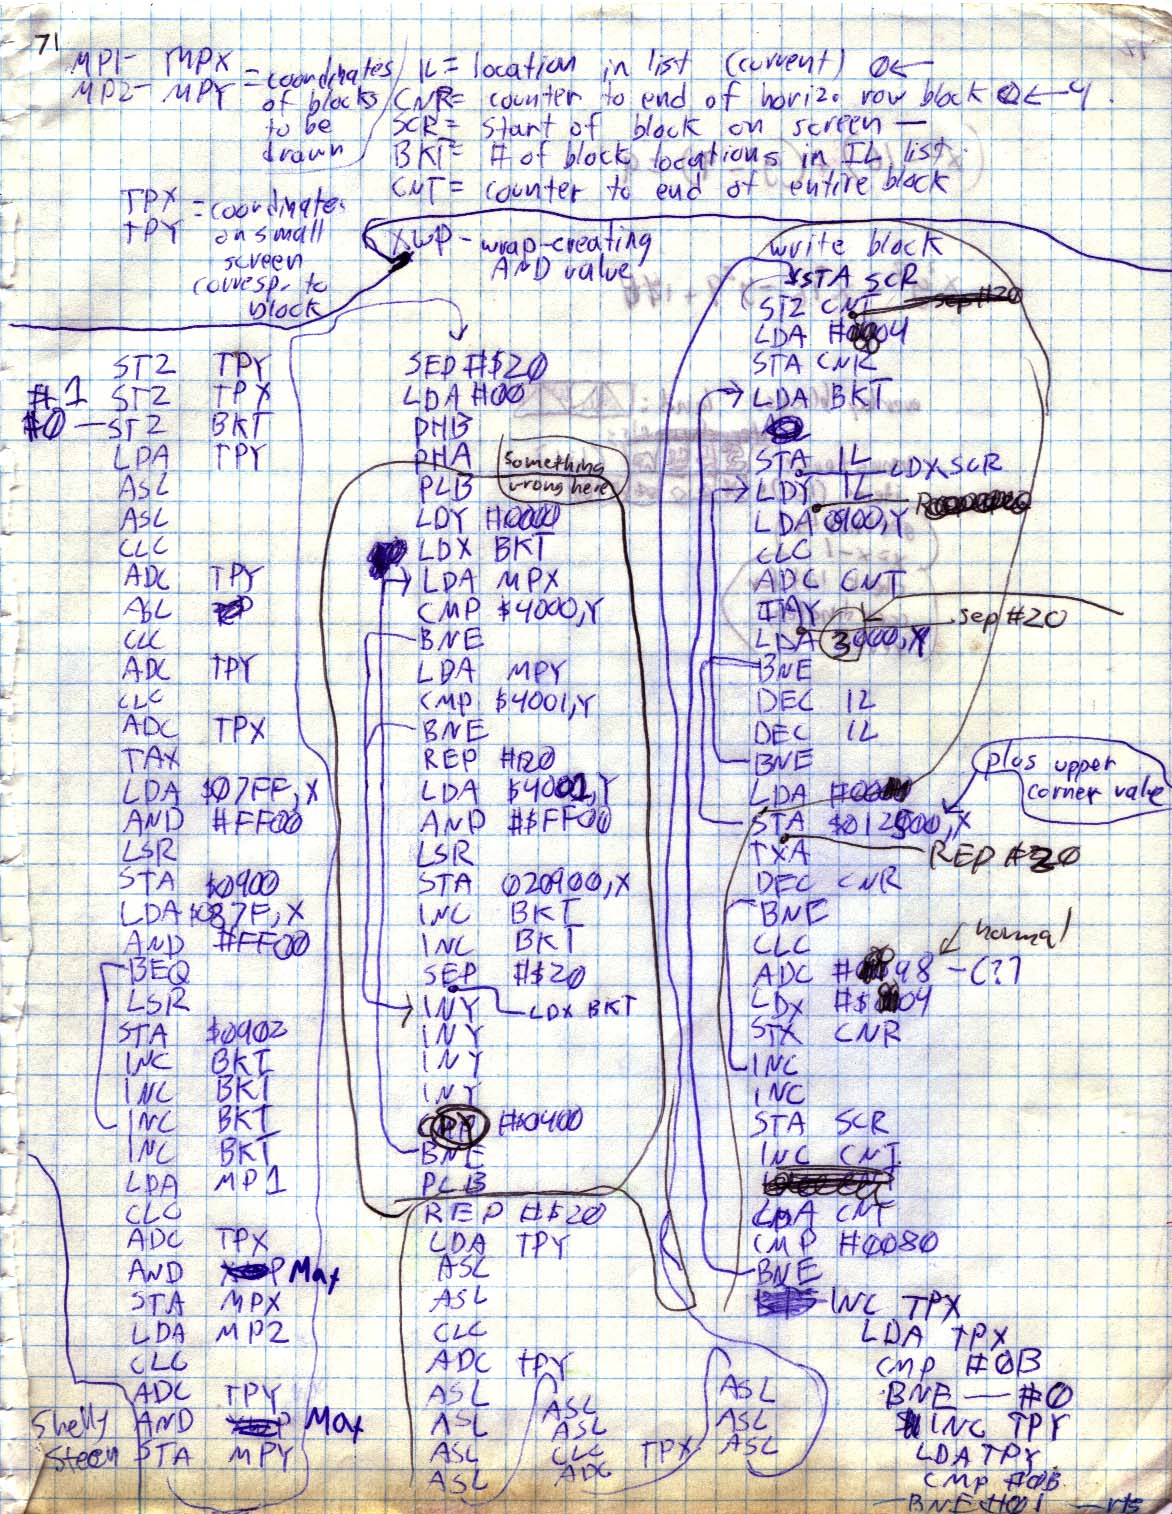 71
MP1- MPX
MP2- MPY
= coordinates
of blocks
to be
drawn
IL = location in list (current) 0←
CNR= counter to end of horiz. row block ←4.
SCR= start of block on screen —
BKT= # of block locations in IL list.
CNT= counter to end of entire block
TPX
TPY
= coordinates
on small
screen
corresp. to
block
XWP - wrap-creating
AND value
STZ TPY
#1 STZ TPX
#0 — STZ BKT
LDA TPY
ASL
ASL
CLC
ADC TPY
ASL
CLC
ADC TPY
CLC
ADC TPX
TAX
LDA $07FF,X
AND #FF00
LSR
STA $0900
LDA $087F,X
AND #FF00
BEQ
LSR
STA $0902
INC BKT
INC BKT
INC BKT
INC BKT
LDA MP1
CLC
ADC TPX
AND Max
STA MPX
LDA MP2
CLC
ADC TPY
AND Max
STA MPY
Shelly
Steen
SEP #$20
LDA #00
PHB
PHA
something
wrong here
PLB
LDY #0000
LDX BKT
LDA MPX
CMP $4000,Y
BNE
LDA MPY
CMP $4001,Y
BNE
REP #20
LDA $4001,Y
AND #$FF00
LSR
STA 020900,X
INC BKT
INC BKT
SEP #$20
LDX BKT
INY
INY
INY
INY
CPY #0400
BNE
PLB
REP #$20
LDA TPY
ASL
ASL
CLC
ADC TPY
ASL
ASL
ASL
ASL
ASL
ASL
CLC
ADC TPX
ASL
ASL
ASL
write block
STA SCR
STZ CNT
sep #20
LDA #0004
STA CNR
LDA BKT
STA IL
LDX SCR
LDY IL
LDA 0900,Y
CLC
ADC CNT
TAY
sep #20
LDA 3000,Y
BNE
DEC IL
DEC IL
BNE
plus upper
corner value
LDA
STA $012000,X
TXA
REP #20
DEC CNR
BNE
CLC
normal
ADC 98 - (?)
LDX #$04
STX CNR
INC
INC
STA SCR
INC CNT
LDA CNT
CMP #0080
BNE
INC TPX
LDA TPX
CMP #0B
BNE — #0
INC TPY
LDA TPY
CMP #0B
BNE #01 — rts